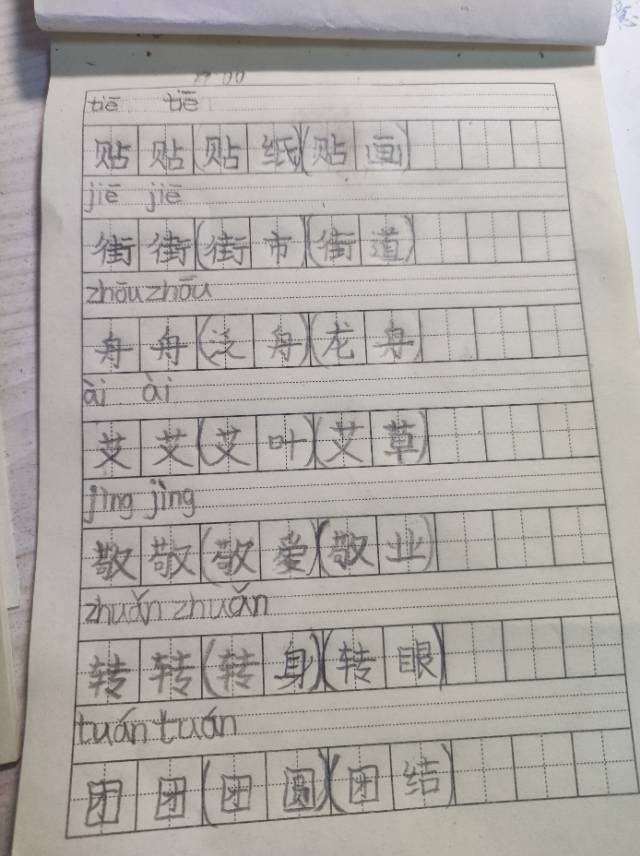 tiē tiē
贴 贴 (贴 纸) (贴 画)
jiē jiē
街 街 (街 市) (街 道)
zhōu zhōu
舟 舟 (泛 舟) (龙 舟)
ài ài
艾 艾 (艾 叶) (艾 草)
jìng jìng
敬 敬 (敬 爱) (敬 业)
zhuǎn zhuǎn
转 转 (转 身) (转 眼)
tuán tuán
团 团 (团 圆) (团 结)